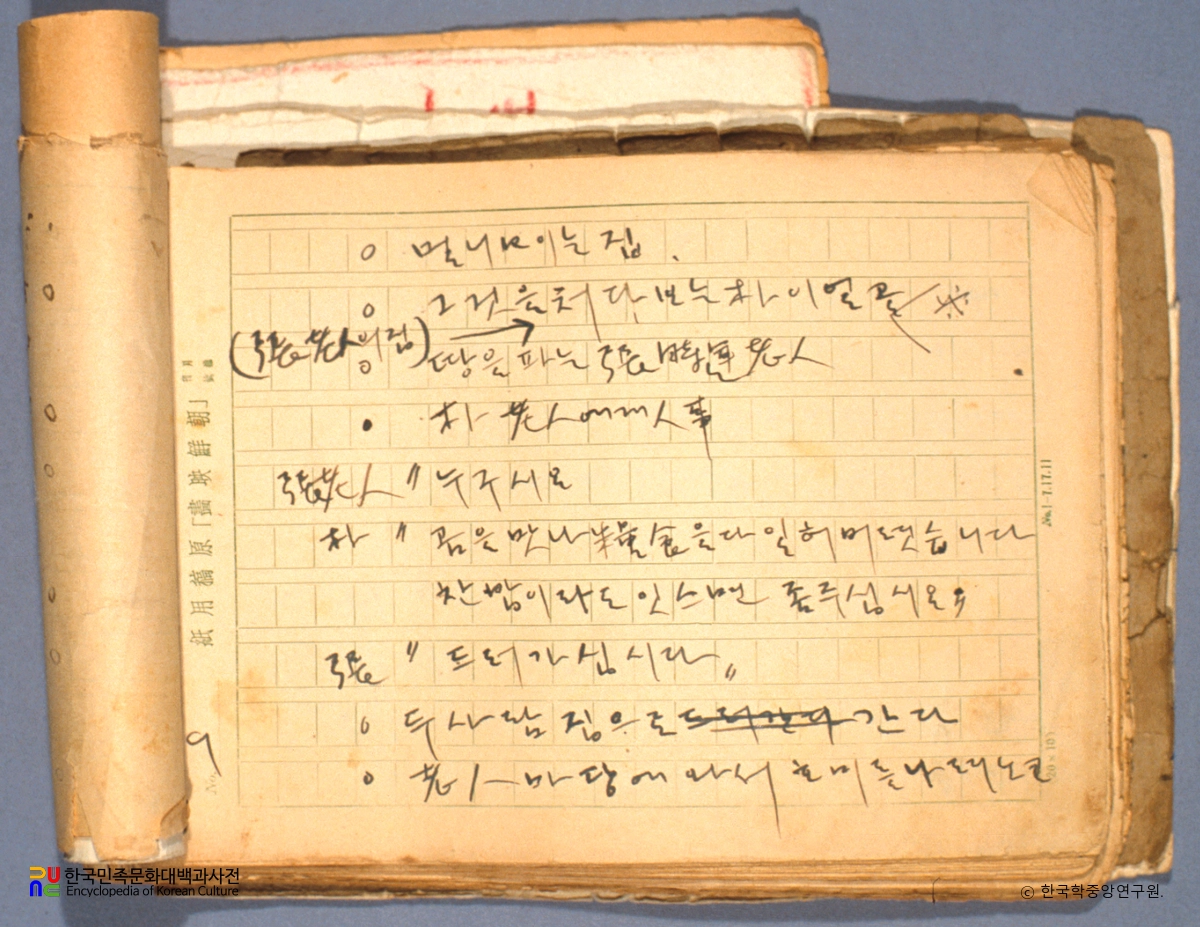 ○ 멀니 보이는 집.
○ 그것을 처다보는 朴이 얼골
(張老人의 집)
○ 땅을 파는 張 老人
● 朴 老人에게 人事
張老人 〃 누구시요
朴 〃 을 맛나 糧食을 다 일허버렷습니다
찬밥이라도 잇스면 좀 주십시요〃
張 〃 드러가십시다〃
○ 두 사람 집으로 드러간다 간다
○ 老人 마당에 와서 호미를 나려노코
「朝鮮映畵」原稿用紙
No. 9
No.1-7.17.11
20×10
한국민족문화대백과사전
Encyclopedia of Korean Culture
© 한국학중앙연구원.